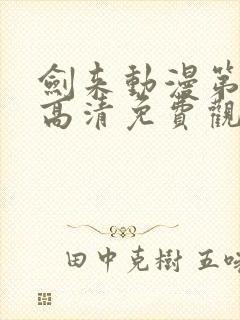 劍来動漫第
高清免費觀
田中克樹 五